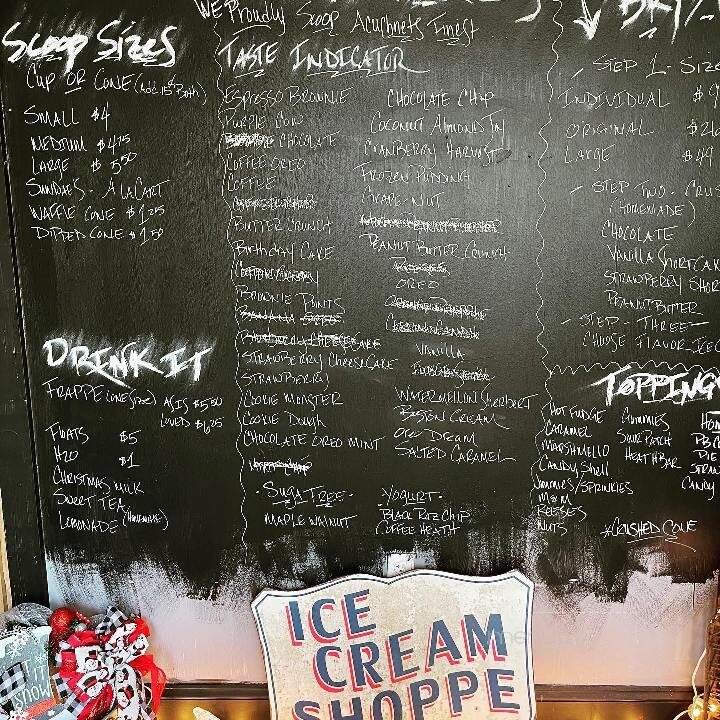 We Proudly Scoop Acushnets Finest
Scoop Sizes
Cup or Cone
Small $4
Medium $4.75
Large $5.50
Sundaes - A La Cart
Waffle Cone $1.25
Dipped Cone $1.50
Drink It
Frappe (one size) As Is $5.50
Floats $5
H2O $1
Christmas Milk
Sweet Tea
Lemonade (Homemade)
Taste Indicator
Espresso Brownie
Purple Cow
Chocolate
Coffee Oreo
Coffee
Butter Crunch
Birthday Cake
Brownie Points
Strawberry Cheesecake
Strawberry
Cookie Monster
Cookie Dough
Chocolate Oreo Mint
- Suga Tree -
Maple Walnut
Chocolate Chip
Coconut Almond
Cranberry Harvest
Frozen Pudding
Grape-Nut
Peanut Butter Crunch
Oreo
Vanilla
Watermellon Sherbert
Boston Cream
Oreo Dream
Salted Caramel
Yogurt -
Black Raz Chip
Coffee Heath
- Step 1 - Size
Individual $9
Original
Large $49
- Step Two - Cru
(Homemade)
Chocolate
Vanilla Shortcak
Strawberry Shor
Peanut Butter
- Step - Three -
Choose Flavor Ice C
Topping
Hot Fudge
Caramel
Marshmello
Candy Shell
Jimmies/Sprinkles
M&M
Reeses
Nuts
Gummies
Sour Patch
Heath Bar
PB C
Candy
*Crushed Cone
ICE
CREAM
SHOPPE
LET IT
SNOW